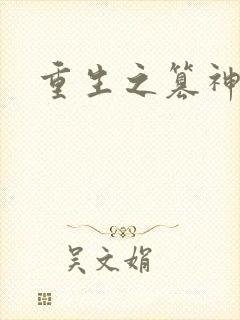 重生之篡神
吴文娟